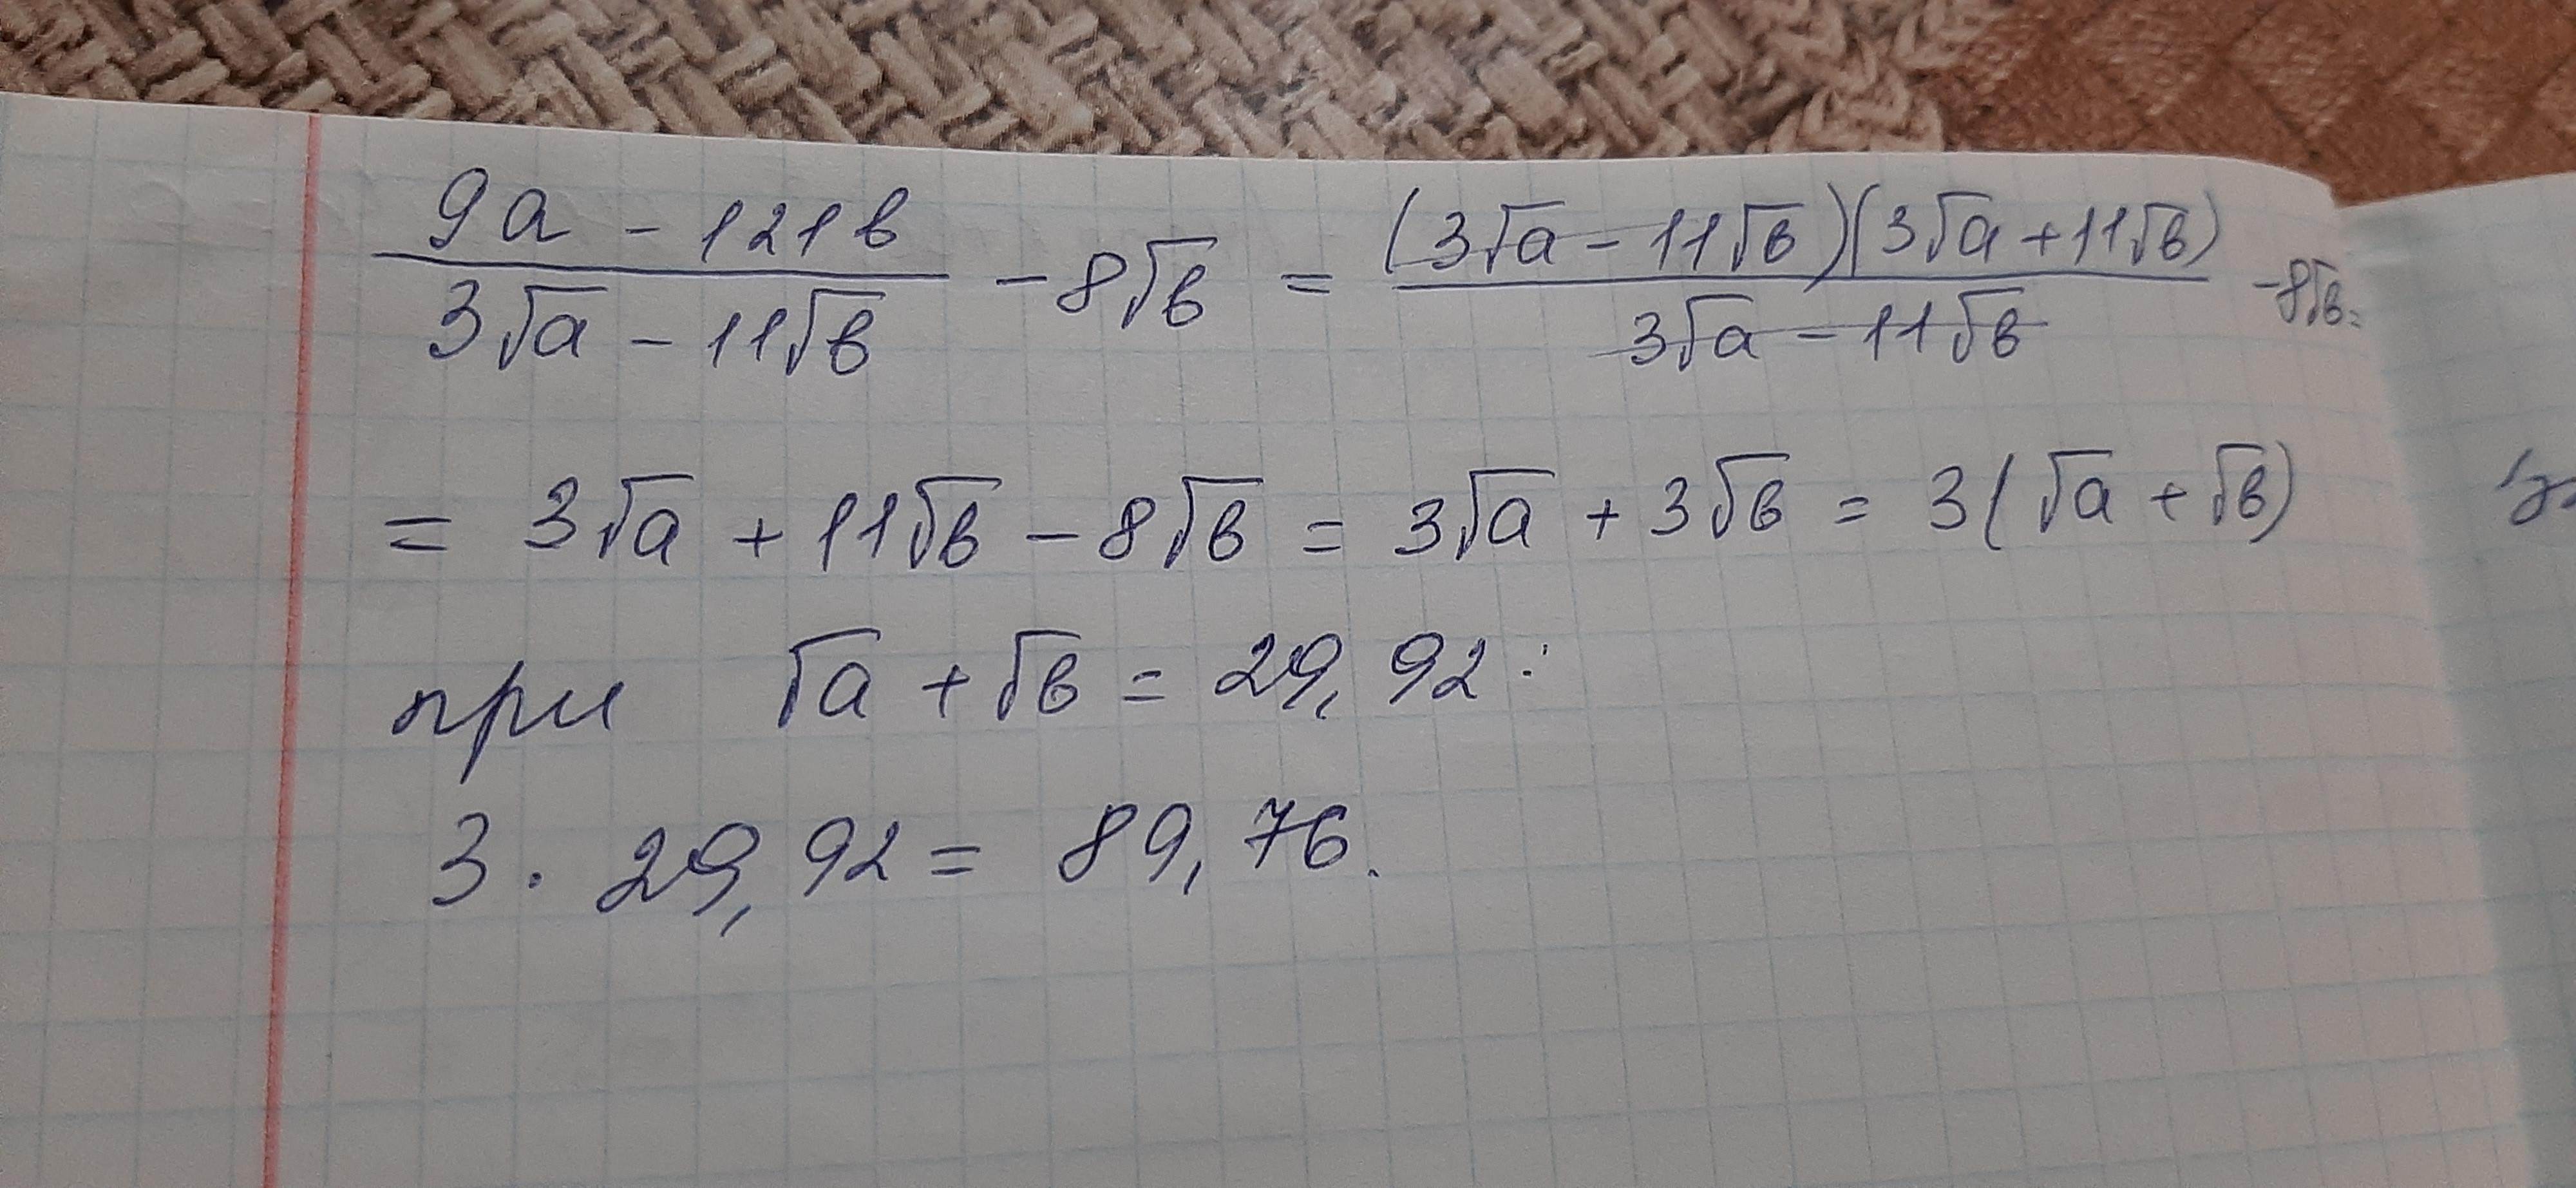 (9a - 121b)/(3√a - 11√b) - 8√b = ((3√a - 11√b)(3√a + 11√b))/(3√a - 11√b) - 8√b =
= 3√a + 11√b - 8√b = 3√a + 3√b = 3(√a + √b)
при √a + √b = 29,92:
3 · 29,92 = 89,76.